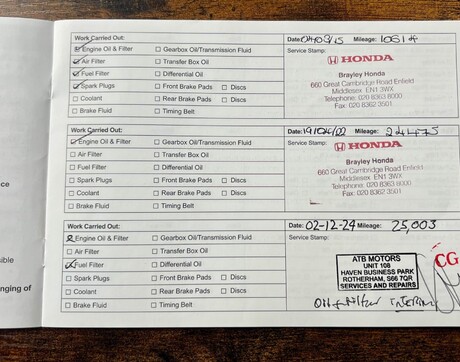 Work Carried Out:
Date: Mileage: 10614
☑ Engine Oil & Filter ☐ Gearbox Oil/Transmission Fluid
Service Stamp:
☑ Air Filter ☐ Transfer Box Oil
HONDA
☑ Fuel Filter ☐ Differential Oil
Brayley Honda
☑ Spark Plugs ☐ Front Brake Pads ☐ Discs
660 Great Cambridge Road Enfield
☐ Coolant ☐ Rear Brake Pads ☐ Discs
Middlesex EN1 3WX
Telephone: 020 8363 8000
☐ Brake Fluid ☐ Timing Belt
Fax: 020 8362 3501
Work Carried Out:
Date: Mileage:
☑ Engine Oil & Filter ☐ Gearbox Oil/Transmission Fluid
Service Stamp:
HONDA
☐ Air Filter ☐ Transfer Box Oil
Brayley Honda
☐ Fuel Filter ☐ Differential Oil
660 Great Cambridge Road Enfield
☐ Spark Plugs ☐ Front Brake Pads ☐ Discs
Middlesex EN1 3WX
☐ Coolant ☐ Rear Brake Pads ☐ Discs
Telephone: 020 8363 8000
Fax: 020 8362 3501
☐ Brake Fluid ☐ Timing Belt
Work Carried Out:
Date: 02-12-24 Mileage: 25,003
☑ Engine Oil & Filter ☐ Gearbox Oil/Transmission Fluid
Service Stamp:
☐ Air Filter ☐ Transfer Box Oil
☑ Fuel Filter ☐ Differential Oil
ATB MOTORS
UNIT 108
☐ Spark Plugs ☐ Front Brake Pads ☐ Discs
HAVEN BUSINESS PARK
ROTHERHAM, S66 7QR
☐ Coolant ☐ Rear Brake Pads ☐ Discs
SERVICES AND REPAIRS
☐ Brake Fluid ☐ Timing Belt
CG
ce
sible
nging of